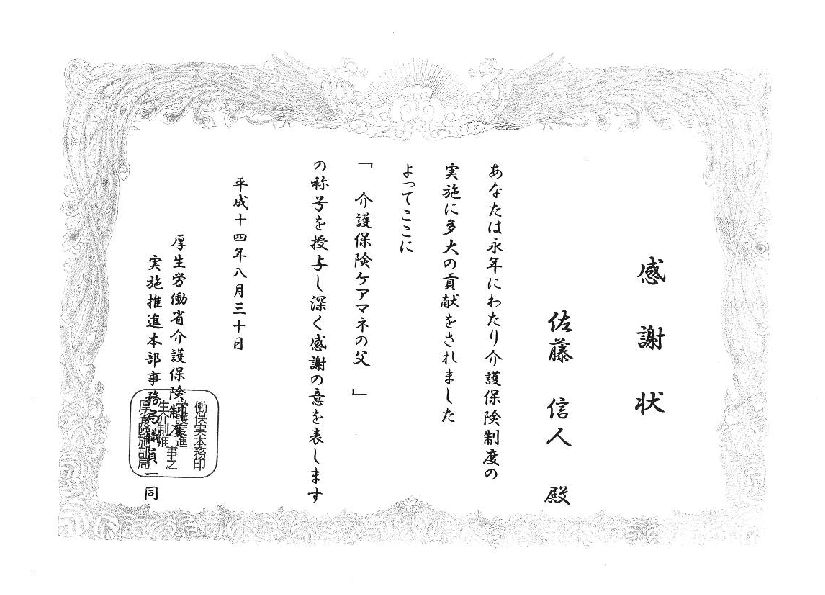 感謝状
佐藤 信人 殿
あなたは永年にわたり介護保険制度の
実施に多大の貢献をされました
よってここに
「 介護保険ケアマネの父 」
の称号を授与し深く感謝の意を表します
平成十四年八月三十日
厚生労働省介護保険制度
実施推進本部事務局職員一同